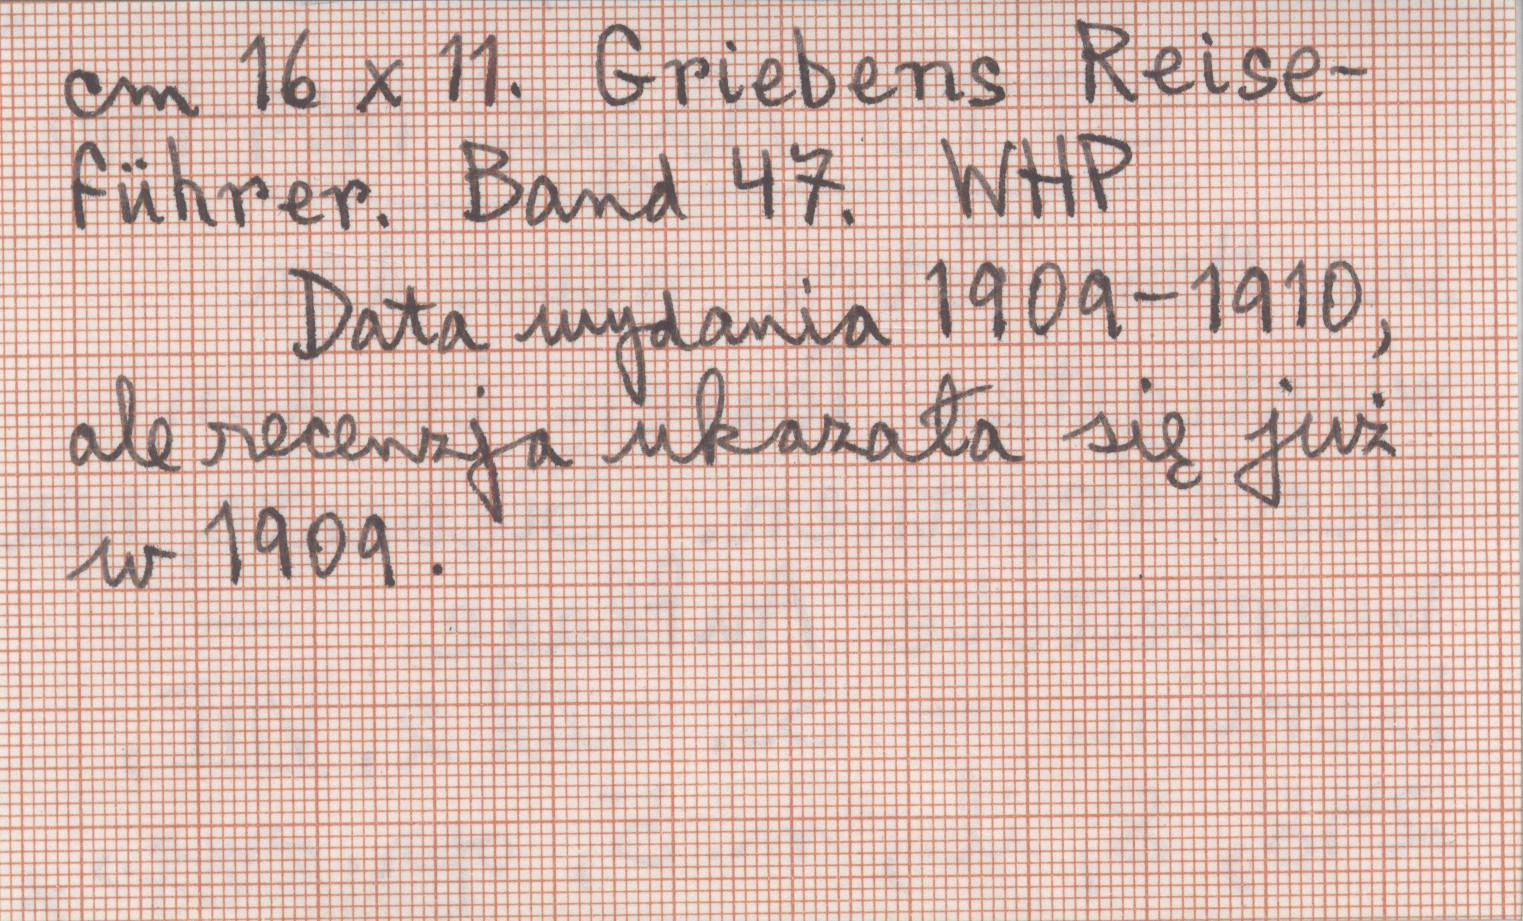 cm 16 x 11. Griebens Reise-
führer. Band 47. WHP
Data wydania 1909-1910,
ale recenzja ukazała się już
w 1909.